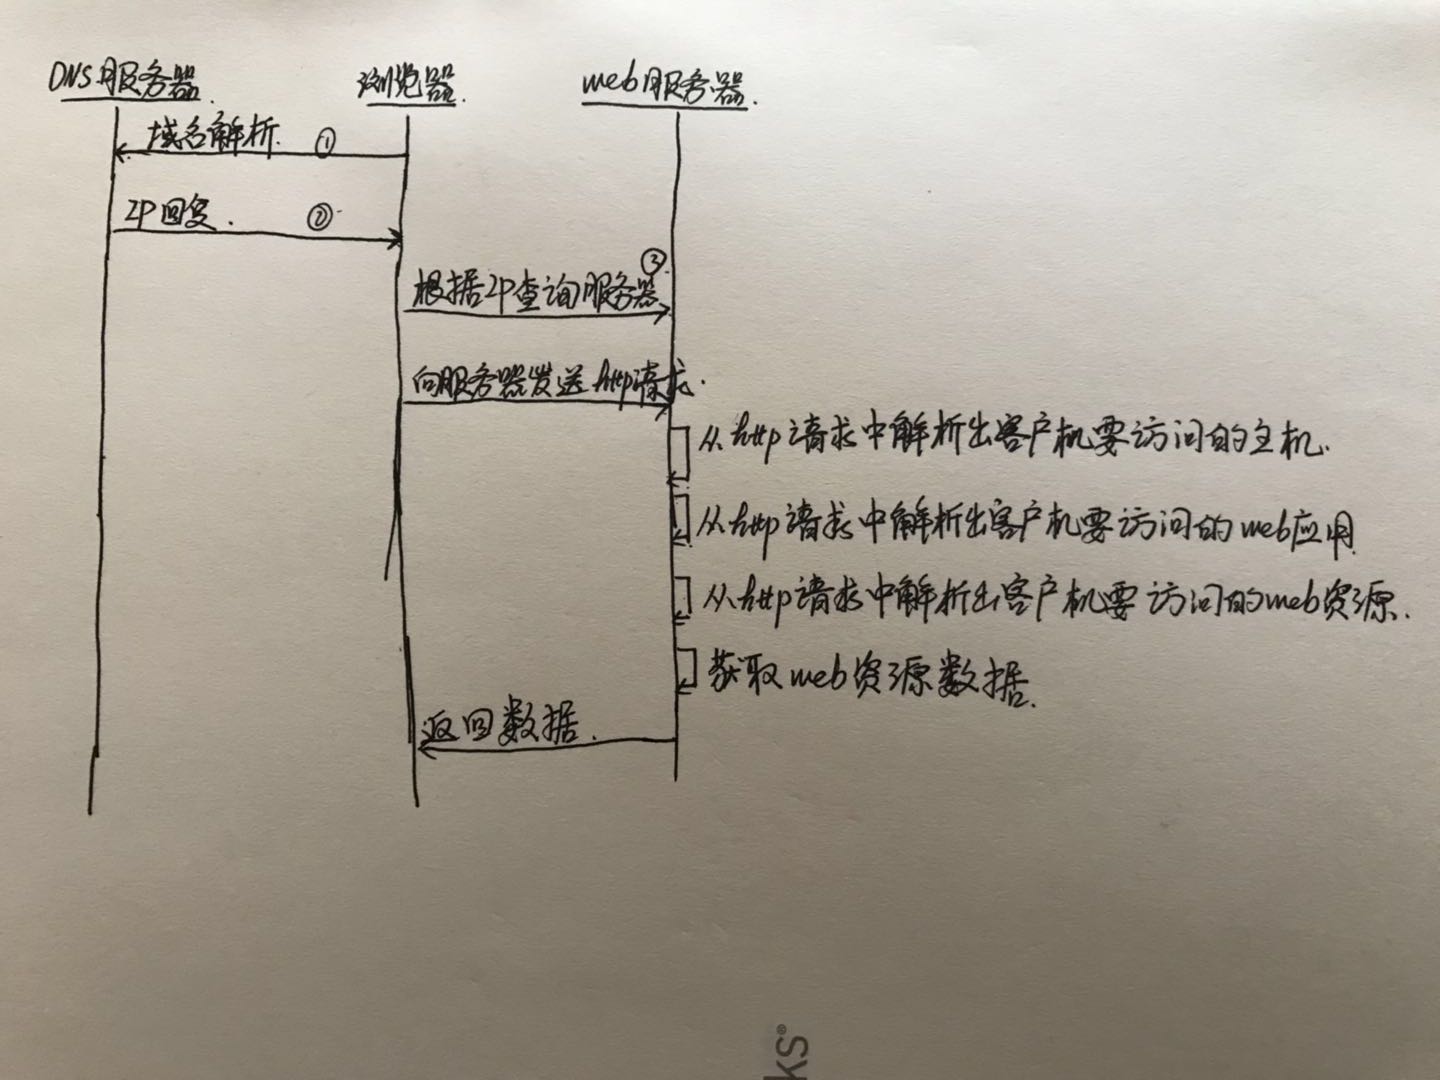 DNS服务器
浏览器
web服务器
域名解析 ①
IP回复 ②
③
根据IP查询服务器
向服务器发送http请求
从http请求中解析出客户机要访问的主机
从http请求中解析出客户机要访问的web应用
从http请求中解析出客户机要访问的web资源
获取web资源数据
返回数据
ks®